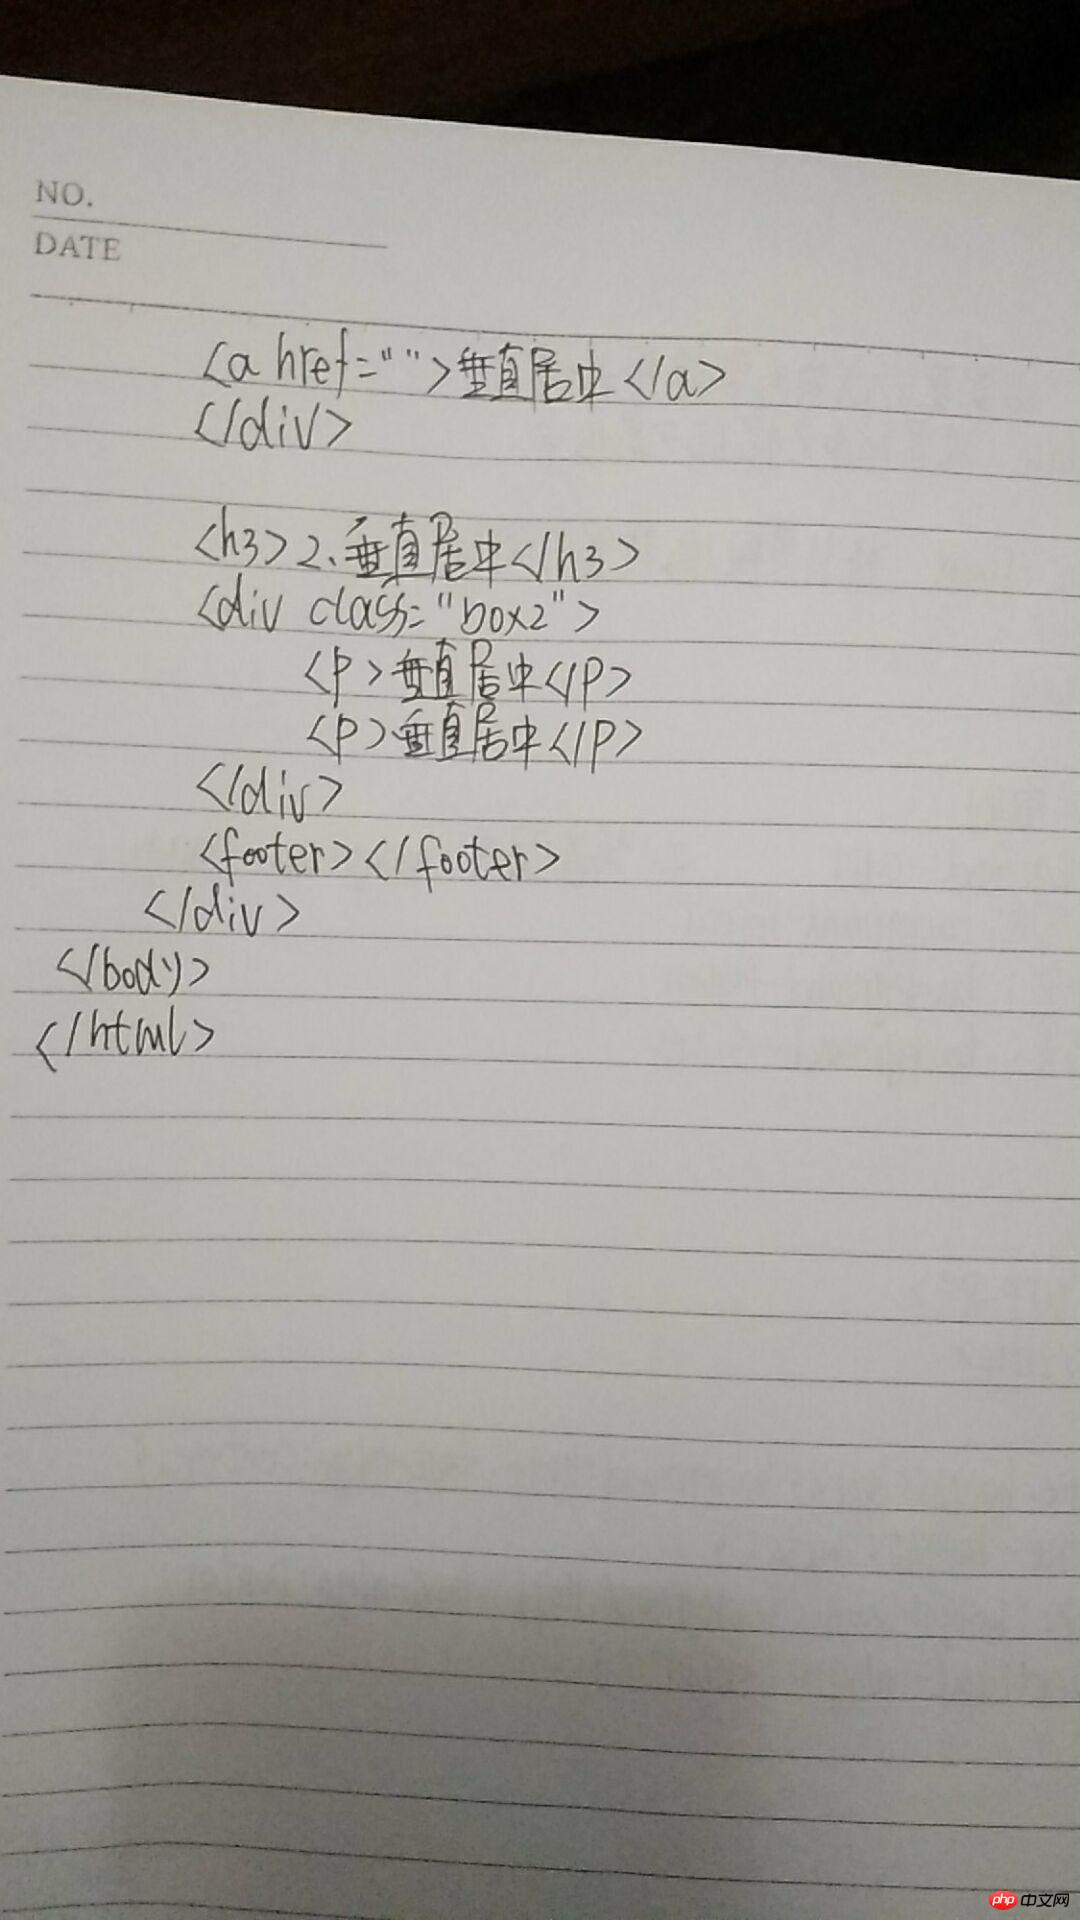 NO.
DATE
<a href="">垂直居中</a>
</div>
<h3>2、垂直居中</h3>
<div class="box2">
<p>垂直居中</p>
<p>垂直居中</p>
</div>
<footer></footer>
</div>
</body>
</html>
php 中文网